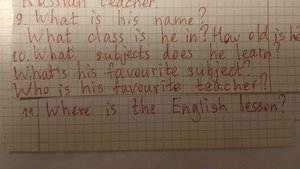 Russian teacher
9. What is his name?
What class is he in? How old is he
10. What subjects does he learn?
What's his favourite subject?
Who is his favourite teacher?
11. Where is the English lesson?